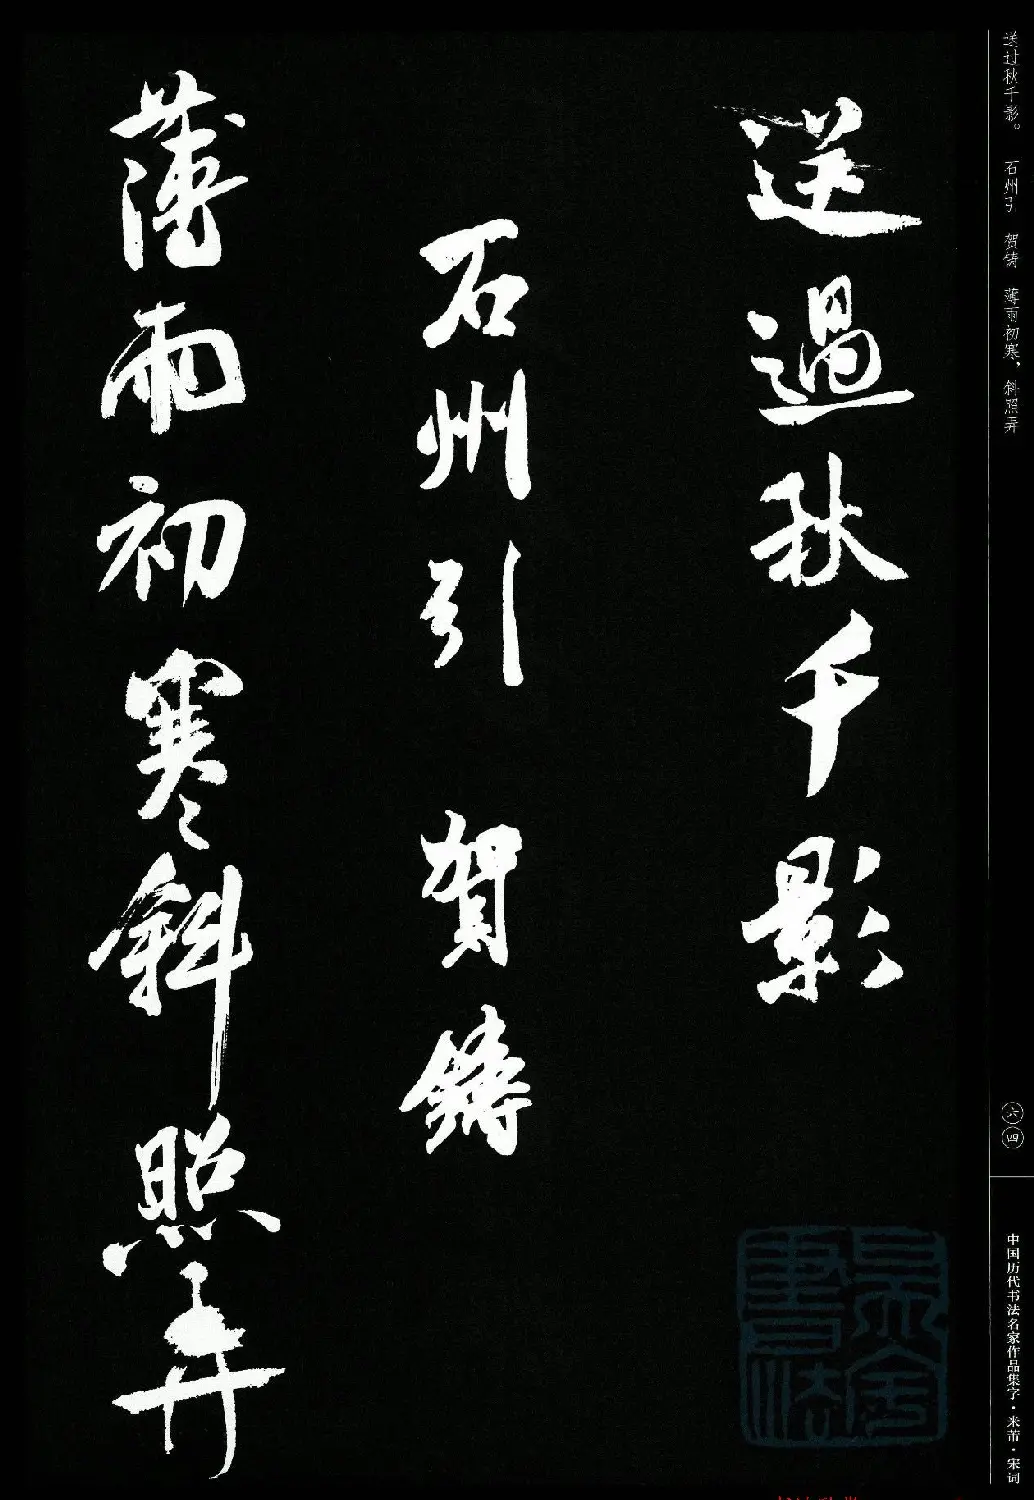 送過秋千影
石州引 賀鑄
薄雨初寒斜照弄
送过秋千影。 石州引 贺铸 薄雨初寒，斜照弄
六四
中国历代书法名家作品集字·米芾·宋词